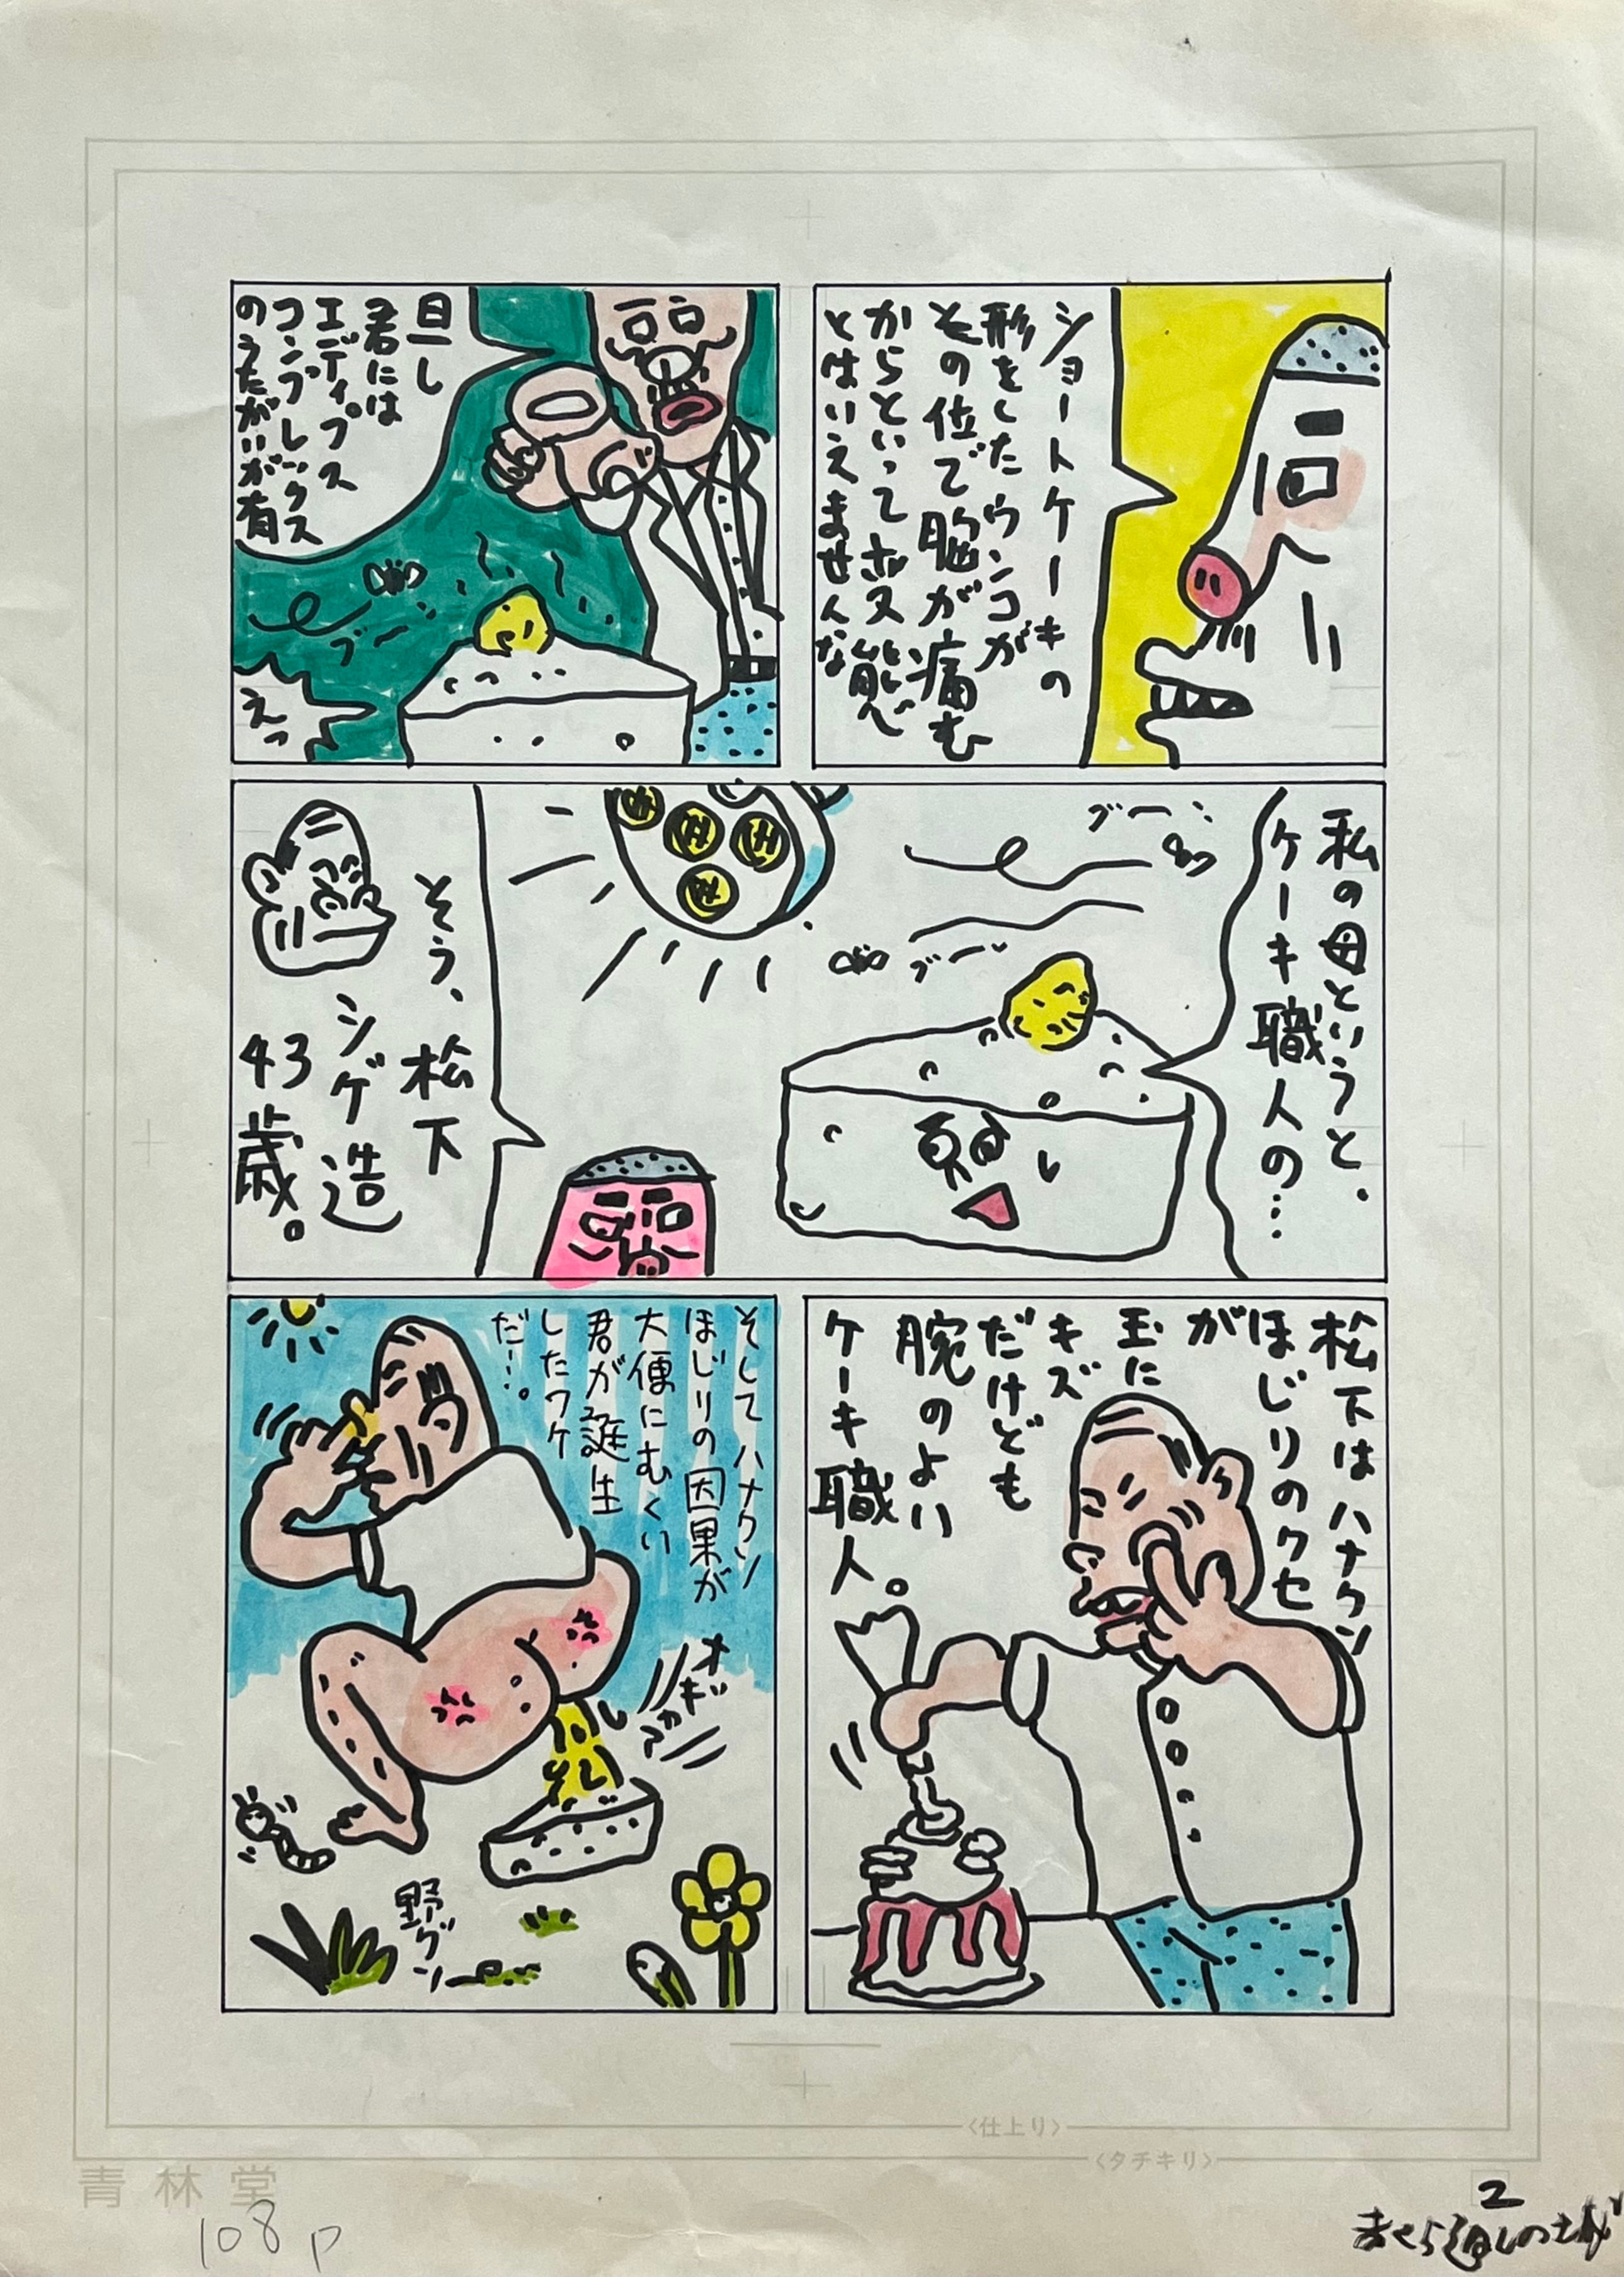 ショートケーキの
形をしたウンコが
その位で脳が痛む
からといってボヌ能
とはいえませんな
旦し
君には
エディプス
コンプレックス
のうたがいが有
ブーン
えっ
私の母というと、
ケーキ職人の…
ブーン
ブーン
そう、松下
シゲ造
43歳。
松下はハナクソ
ほじりのクセ
が
玉に
キズ
だけども
腕のよい
ケーキ職人。
そしてハナクソ
ほじりの因果が
大便にむくい
君が誕生
したワケ
だ…。
オギャアア
野グソ
〈仕上り〉
〈タチキリ〉
青林堂
108p
2